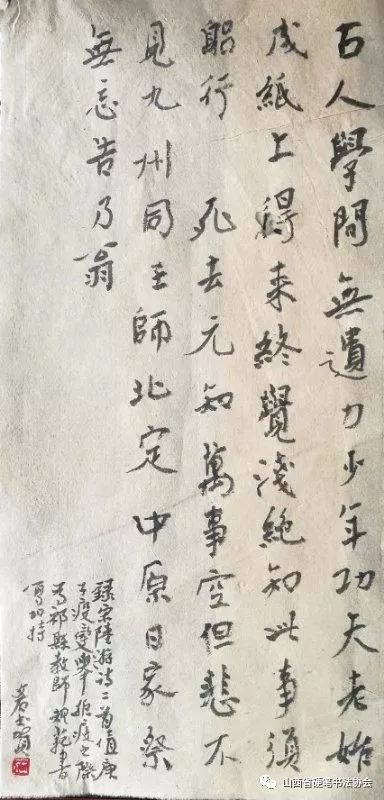 古人學問無遺力少年功夫老始
成紙上得来終覺淺絕知此事須
躬行 死去元知萬事空但悲不
見九州同王師北定中原日家祭
無忘告乃翁
錄宋陸游詩二首值庚
子疫变舉抗疫之際
為祁縣教師規範書
寫加持
山西省硬笔书法协会